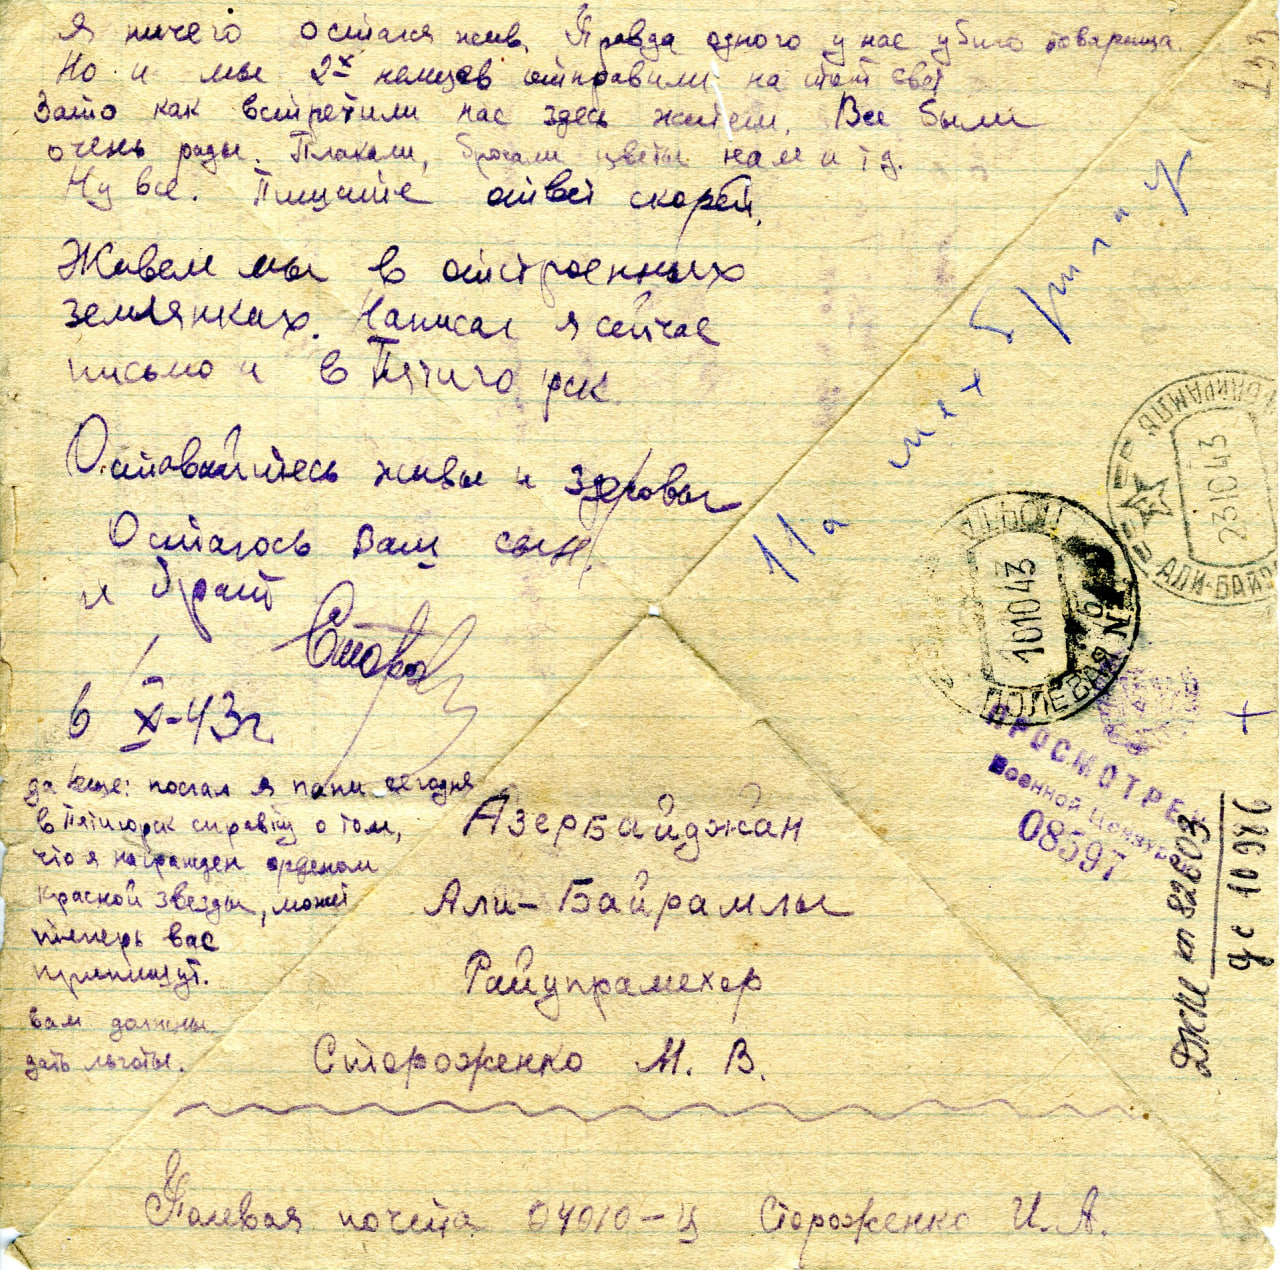 Я ничего остался жив. Правда одного у нас убило товарища.
Но и мы 2х немцев отправили на тот свет
Зато как встретили нас здесь жители. Все были
очень рады. Плакали, бросали цветы нам и т д.
Ну все. Пишите ответ скорей.
Живем мы в отстроенных
землянках. Написал я сейчас
письмо и в Пятигорск
Оставайтесь живы и здоровы
Остаюсь ваш сын
и брат
6 X-43г
да еще: послал я папи сегодня
в Пятигорск справку о том,
что я награжден орденом
Красной звезды, может
теперь вас
пропишут.
вам должны
дать льготы.
Азербайджан
Али-Байрамлы
Райупрамехор
Стороженко М. В.
Полевая почта 04010-Ц Стороженко И. А.
11а
23 10 43
АЛИ-БАЙР
10 10 43
ПОЛЕВАЯ №
ПРОСМОТРЕНО
Военной Цензурой
08597
кп 82603
10946